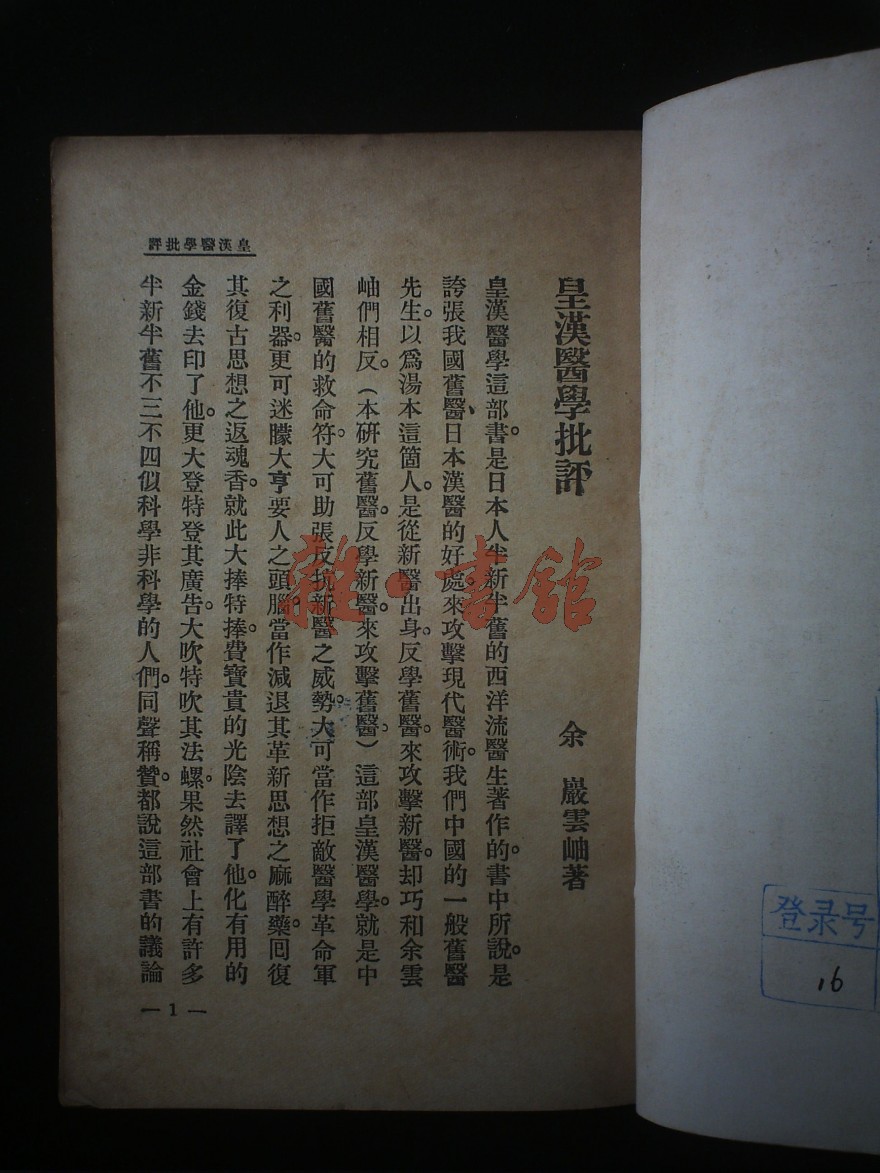 皇漢醫學批評
皇漢醫學批評
余 巖雲岫著
皇漢醫學這部書。是日本人半新半舊的西洋流醫生著作的。書中所說。是
誇張我國舊醫、日本漢醫的好處。來攻擊現代醫術。我們中國的一般舊醫
先生。以爲湯本這箇人。是從新醫出身。反學舊醫。來攻擊新醫。却巧和余雲
岫們相反。(本研究舊醫。反學新醫。來攻擊舊醫。)這部皇漢醫學。就是中
國舊醫的救命符。大可助張反抗新醫之威勢。大可當作拒敵醫學革命軍
之利器。更可迷朦大亨要人之頭腦。當作減退其革新思想之麻醉藥。囘復
其復古思想之返魂香。就此大捧特捧。費寶貴的光陰去譯了他。化有用的
金錢去印了他。更大登特登其廣告。大吹特吹其法螺。果然社會上有許多
半新半舊不三不四似科學非科學的人們。同聲稱贊。都說這部書的議論
— 1 —
雜·書館
登录号
16